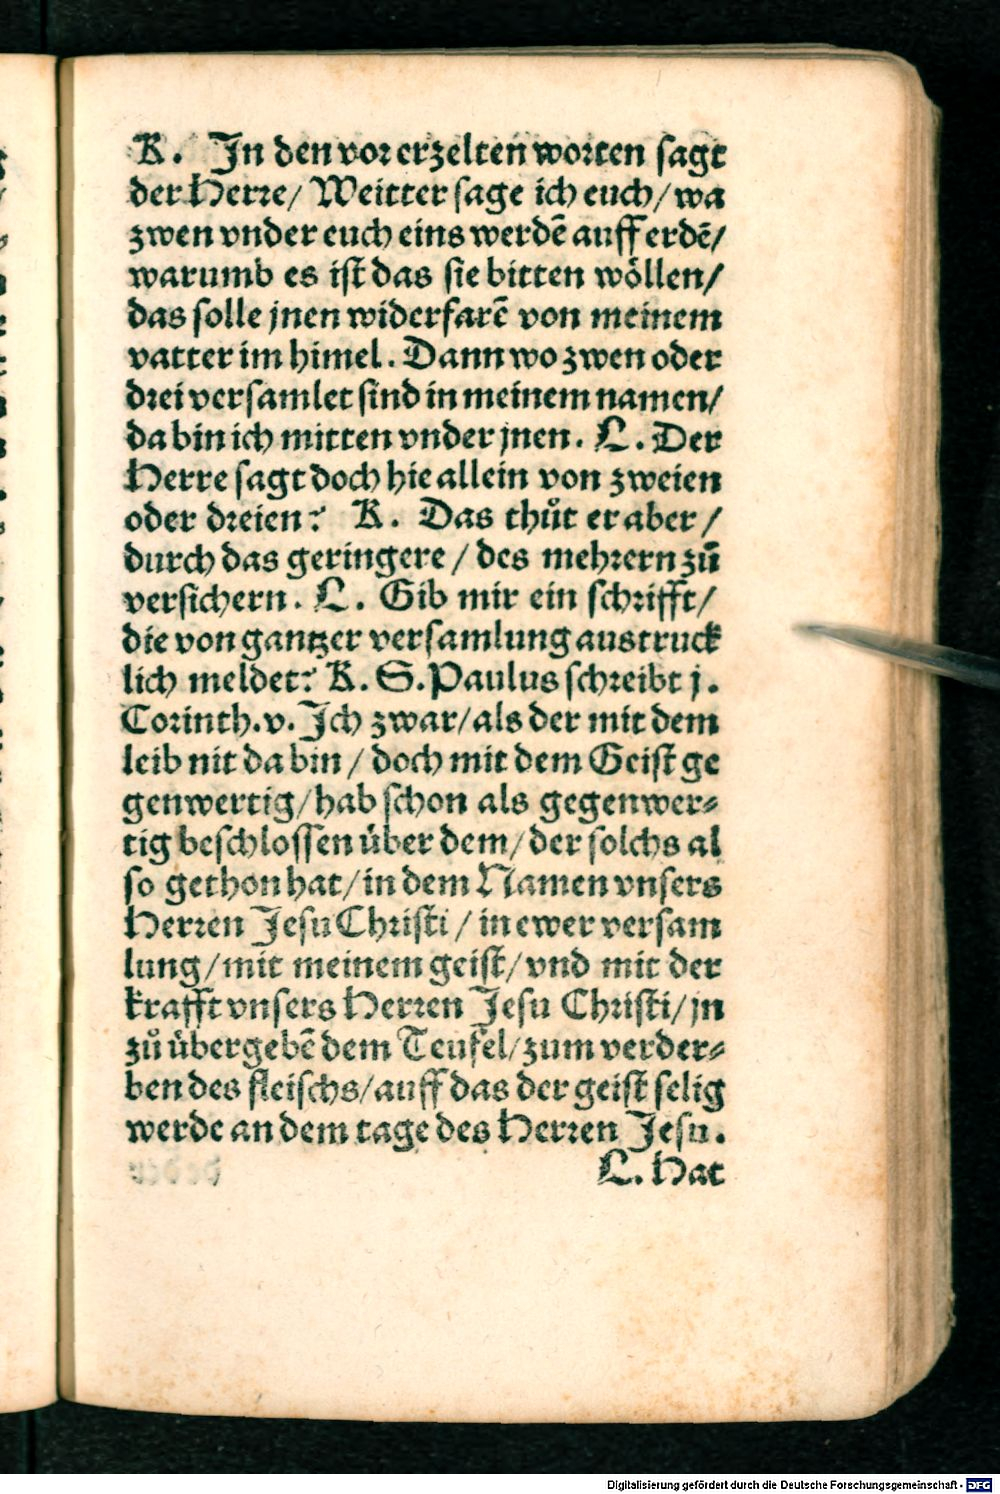 K. In den vor erzelten worten sagt
der Herre/ Weitter sage ich euch/ wa
zwen vnder euch eins werdē auff erdē/
warumb es ist das sie bitten wöllen/
das solle jnen widerfarē von meinem
vatter im himel. Dann wo zwen oder
drei versamlet sind in meinem namen/
da bin ich mitten vnder jnen. L. Der
Herre sagt doch hie allein von zweien
oder dreien? K. Das thůt er aber/
durch das geringere/ des mehrern zů
versichern. L. Gib mir ein schrifft/
die von gantzer versamlung austruck
lich meldet? K. S. Paulus schreibt j.
Corinth. v. Ich zwar/ als der mit dem
leib nit da bin/ doch mit dem Geist ge
genwertig/ hab schon als gegenwer⸗
tig beschlossen über dem/ der solchs al
so gethon hat/ in dem Namen vnsers
Herren Jesu Christi/ in ewer versam
lung/ mit meinem geist/ vnd mit der
krafft vnsers Herren Jesu Christi/ jn
zů übergebē dem Teufel/ zum verder⸗
ben des fleischs/ auff das der geist selig
werde an dem tage des Herren Jesu.
L. Hat
Digitalisierung gefördert durch die Deutsche Forschungsgemeinschaft - DFG